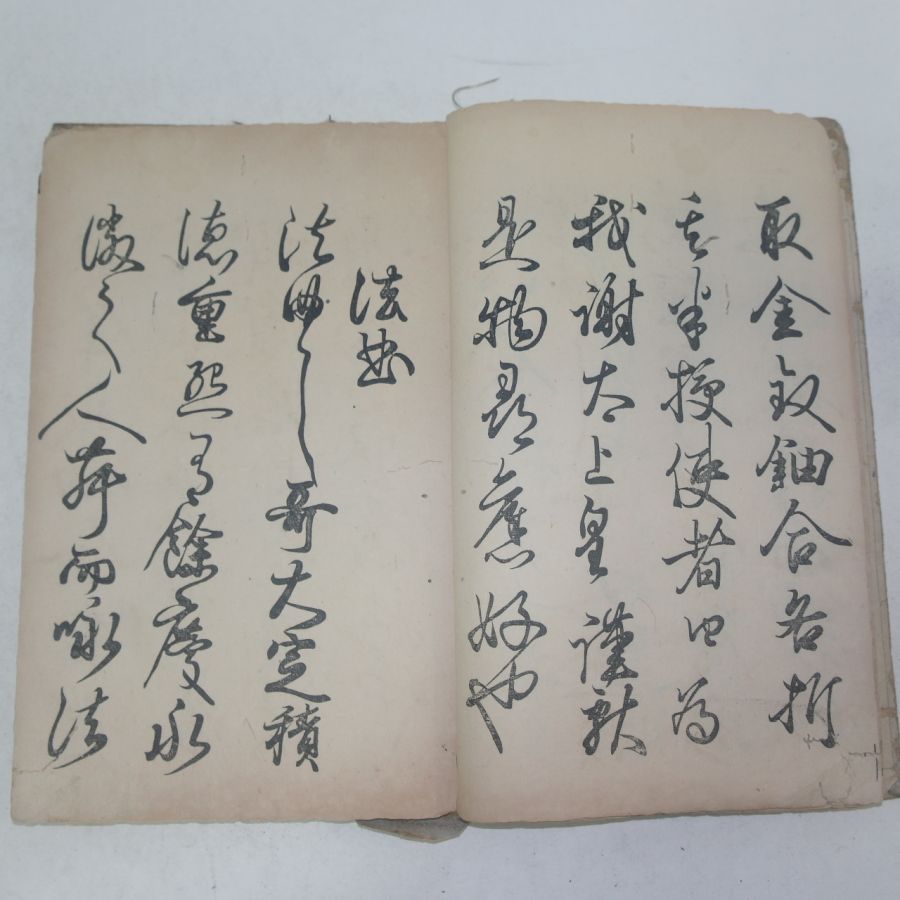 取金釵鈿合各折
其半授使者曰為
我謝太上皇謹献
是物尋舊好也
法曲
法曲〱哥大定積
徳重熙有餘慶永
徽之人舞而咏法